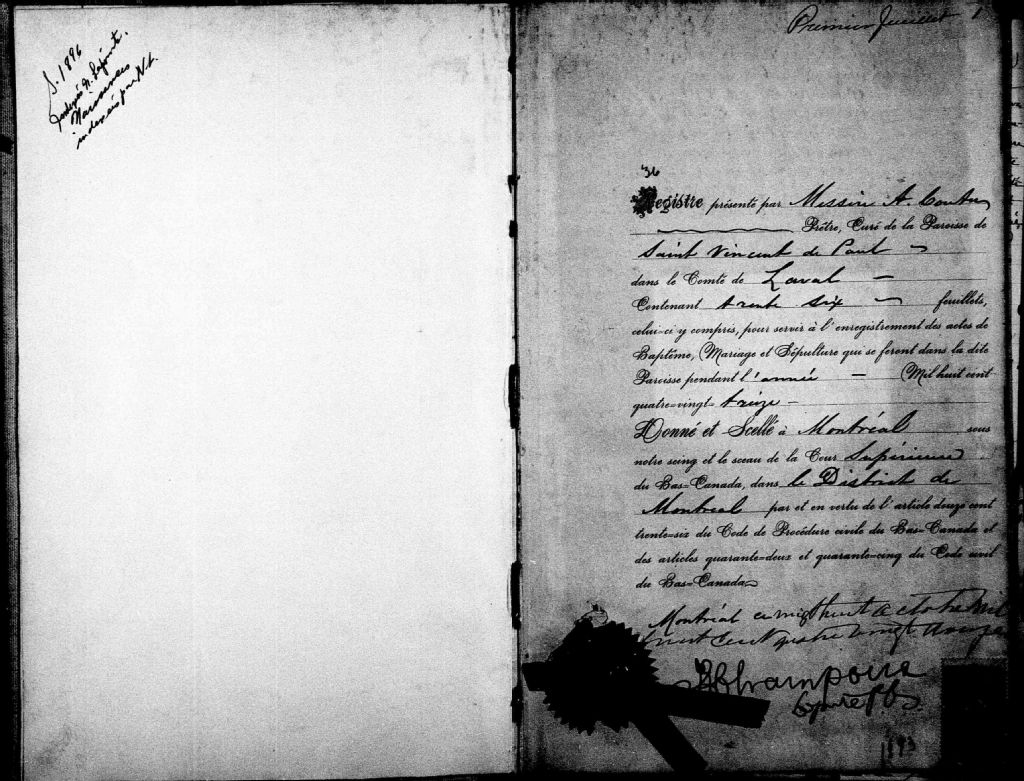 S. 1896
Naissances
indexés par N. L.
Premier feuillet 1
36
Registre présenté par Messire A. Coutu
Prêtre, Curé de la Paroisse de
Saint Vincent de Paul
dans le Comté de Laval
Contenant trente six feuillets,
celui-ci y compris, pour servir à l'enregistrement des actes de
Baptême, Mariage et Sépulture qui se feront dans la dite
Paroisse pendant l'année Mil huit cent
quatre-vingt-treize
Donné et Scellé à Montréal sous
notre seing et le sceau de la Cour Supérieure
du Bas-Canada, dans le District de
Montréal par et en vertu de l'article douze cent
trente-six du Code de Procédure civile du Bas-Canada et
des articles quarante-deux et quarante-cinq du Code civil
du Bas-Canada
Montréal ce
huit cent quatre vingt
1893